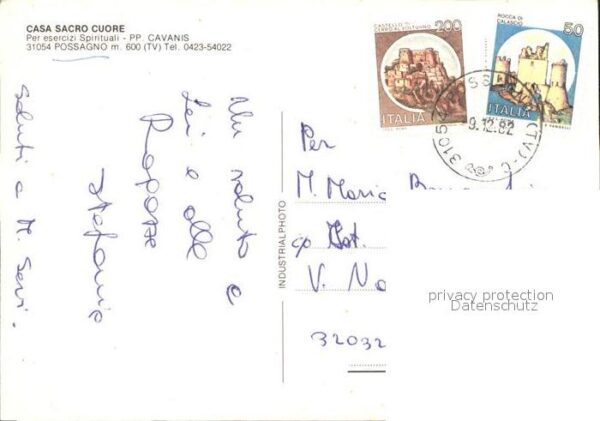 CASA SACRO CUORE
Per esercizi Spirituali - PP. CAVANIS
31054 POSSAGNO m. 600 (TV) Tel. 0423-54022
CASTELLO DI
CERRO AL VOLTURNO
200
ITALIA
ROCCA DI
CALASCIO
50
ITALIA
9.12.82
(TV)
Un saluto a
Lei e alle
Ragazze
Stefania
Saluti a M. Servi.
INDUSTRIALPHOTO
Per
M. Maria
c/o Ist.
V. Na
32032
privacy protection
Datenschutz